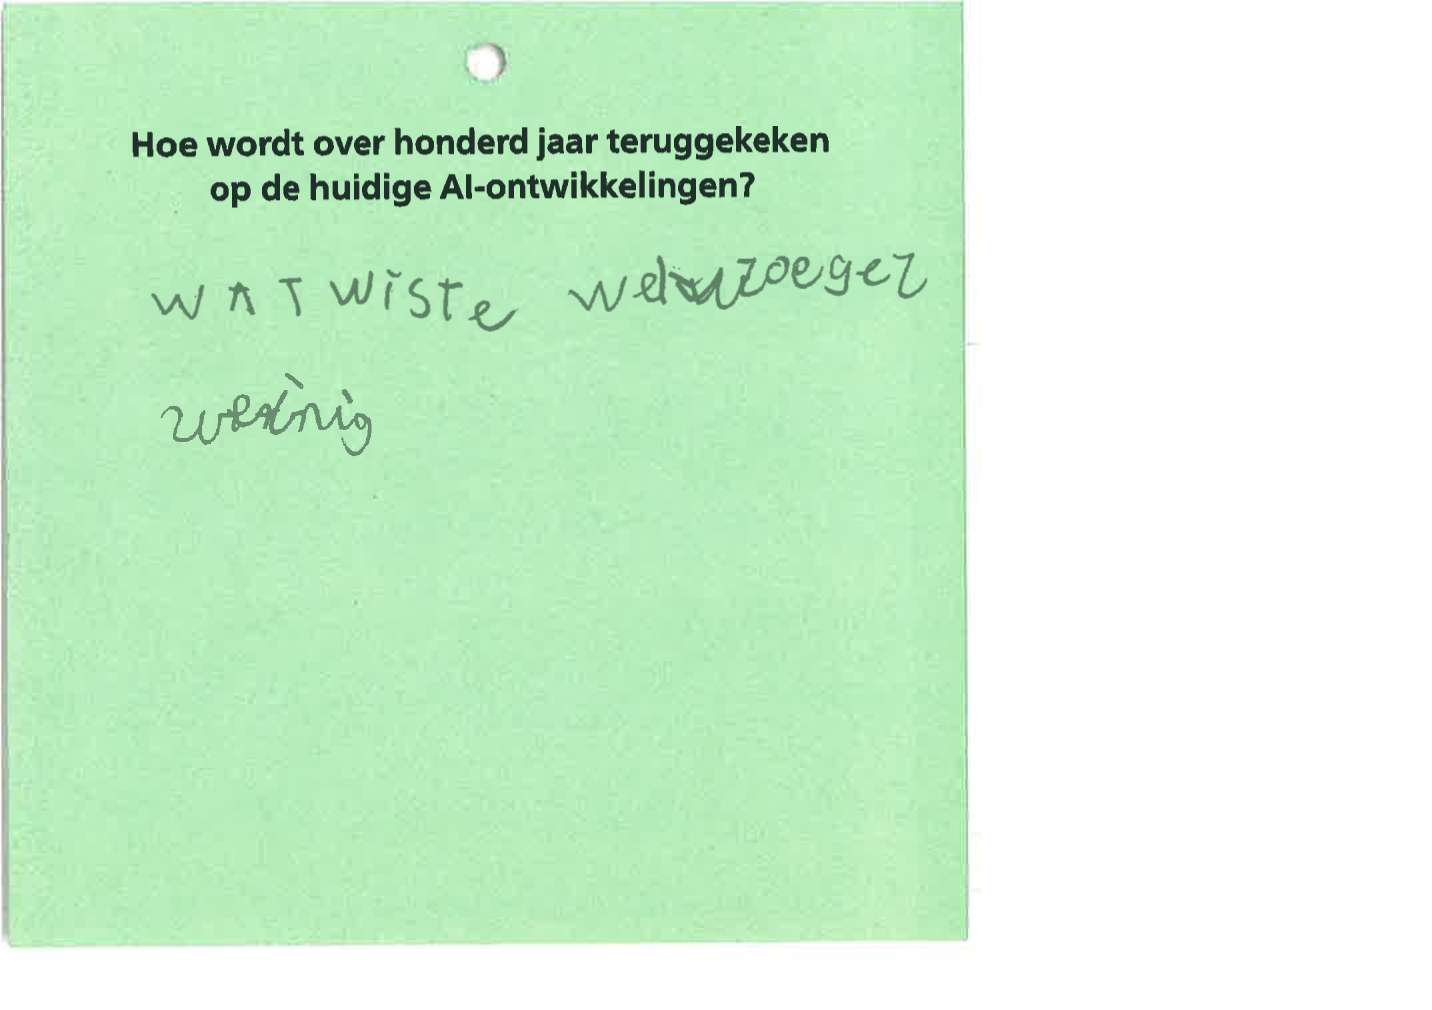 Hoe wordt over honderd jaar teruggekeken
op de huidige AI-ontwikkelingen?
WAT WISTE we vroeger
weinig